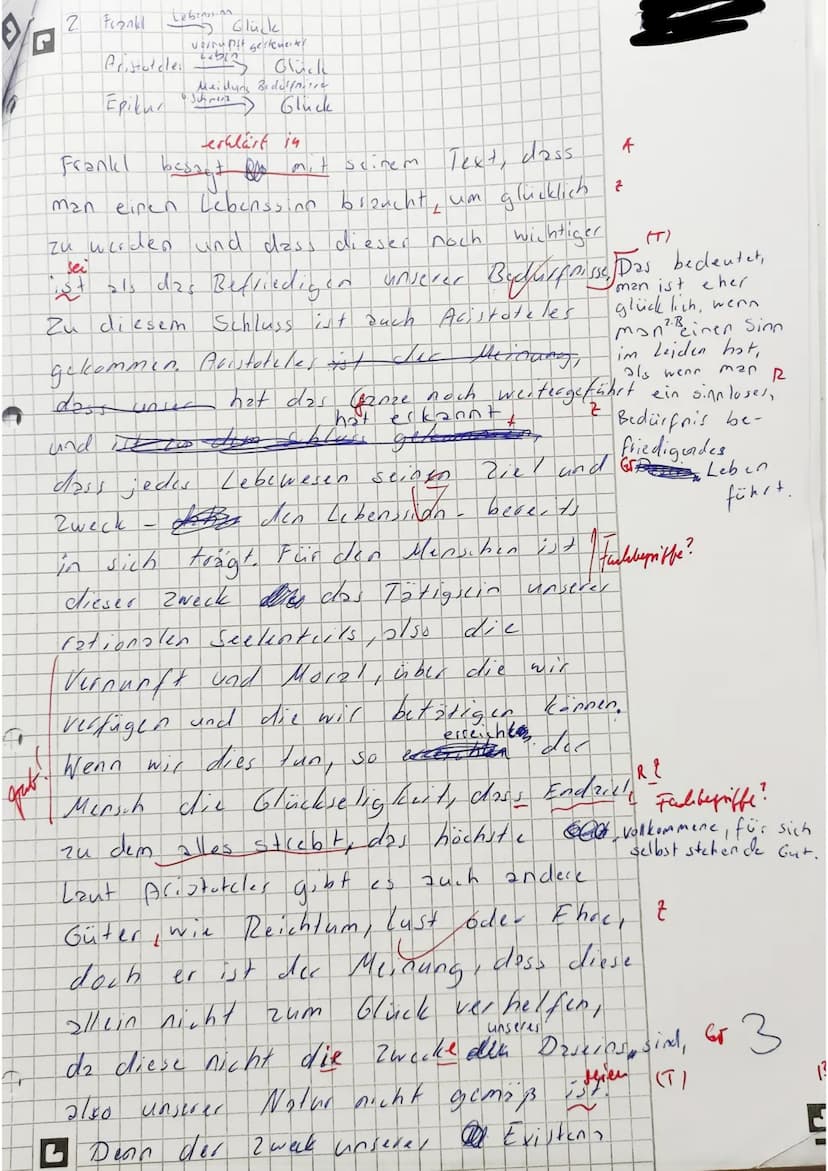 2 Frankl Lebenssinn → Glück
Aristoteles vernunft gesteuertes Leben → Glück
Epikur Meidung Schmerz Bedürfnisse → Glück
erklärt in
Frankl besagt mit seinem Text, dass A
man einen Lebenssinn braucht, um glücklich Z
zu werden und dass dieser noch wichtiger (T)
sei
ist als das Befriedigen unserer Bedürfnisse. Das bedeutet,
man ist eher
Zu diesem Schluss ist auch Aristoteles glücklich, wenn
man z.B. einen Sinn
gekommen. Aristoteles ist der Meinung, im Leiden hat,
als wenn man R
dass unser hat das Ganze noch weitergeführt ein sinnloses,
hat erkannt Z Bedürfnis be-
und gekommen, friedigendes
dass jedes Lebewesen seinen Ziel und Gr Leben
führt.
Zweck - den Lebenssinn - bereits
in sich trägt. Für den Menschen ist Fachbegriffe?
dieser Zweck das Tätigsein unseres
rationalen Seelenteils, also die
Vernunft und Moral, über die wir
verfügen und die wir betätigen können.
erreicht
Wenn wir dies tun, so der
gut!
Mensch die Glückseligkeit, dass Endziel, R Z Fachbegriffe?
zu dem alles strebt, das höchste vollkommene, für sich
selbst stehende Gut.
Laut Aristoteles gibt es auch andere
Güter, wie Reichtum, Lust oder Ehre, Z
doch er ist der Meinung, dass diese
allein nicht zum Glück verhelfen,
unseres
da diese nicht die Zwecke Daseins sind, Gr 3
seien
also unserer Natur nicht gemäß ist. (T)
Denn der Zweck unserer Existenz